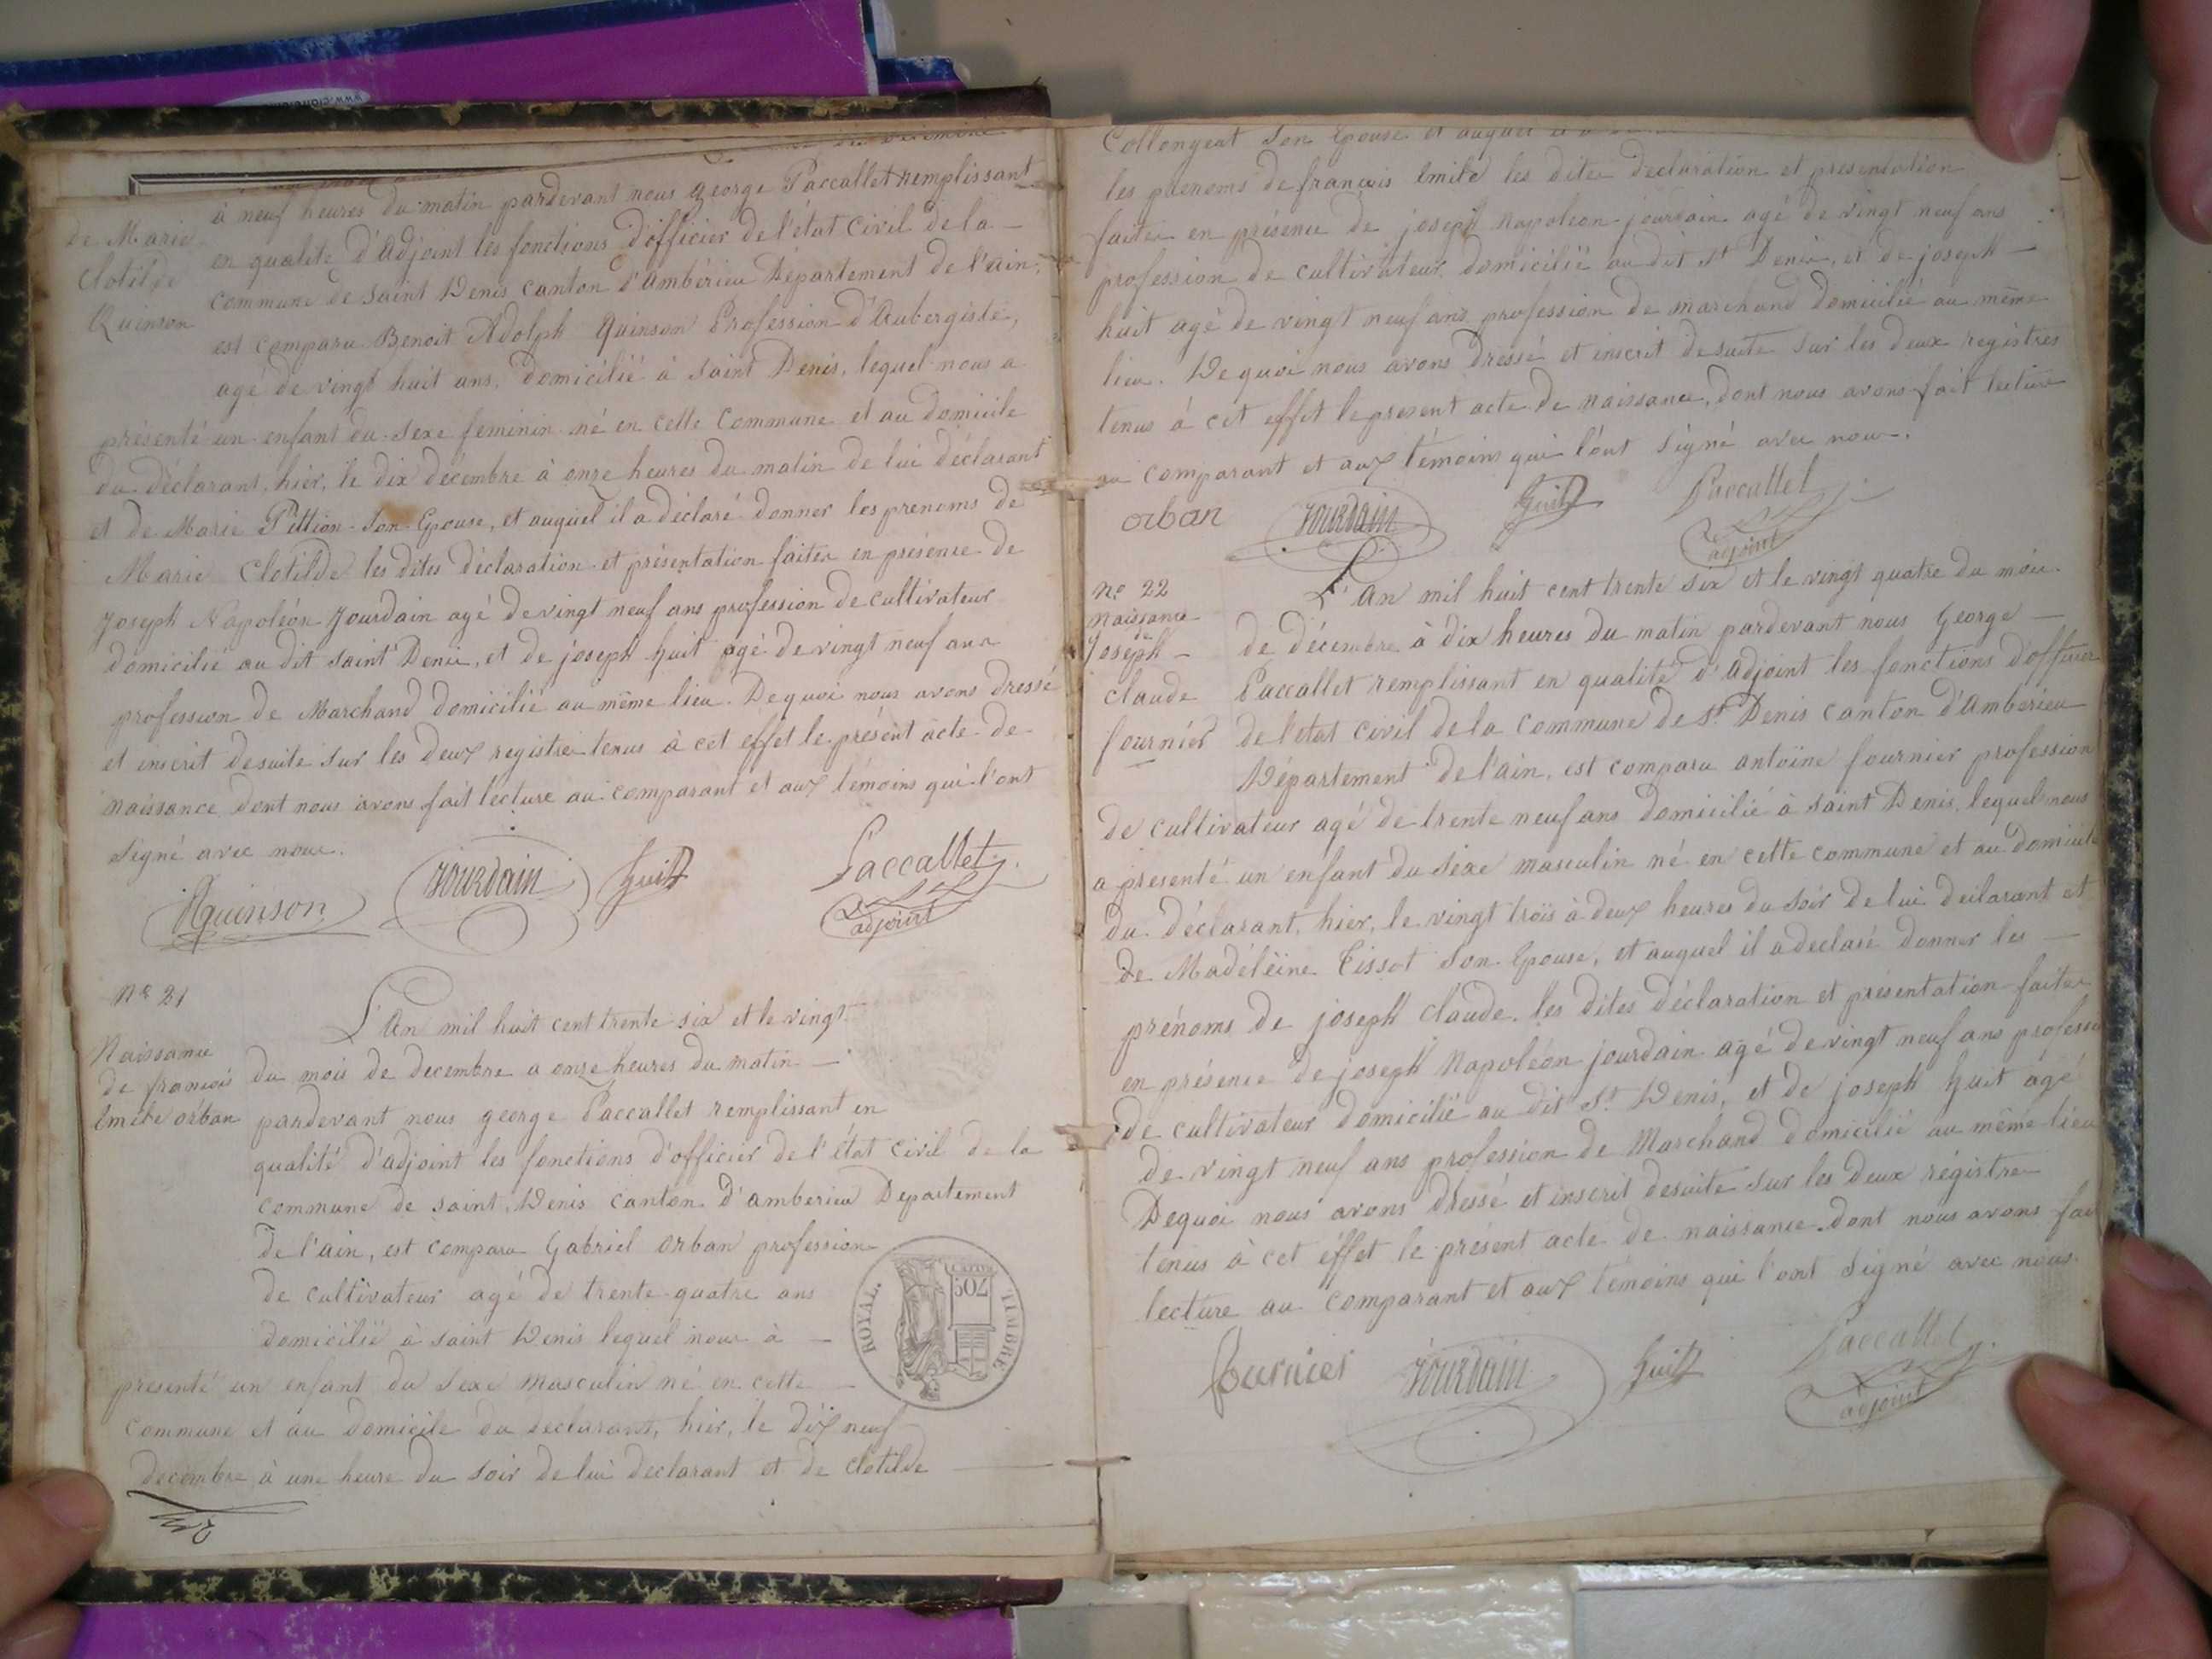 à neuf heures du matin pardevant nous george Paccallet remplissant
de Marie
en qualité d'adjoint les fonctions d'officier de l'état civil de la
Clotilde
commune de saint Denis canton d'ambérieu Département de l'ain,
Quinson
est comparu Benoit Adolph Quinson Profession d'Aubergiste,
agé de vingt huit ans, domicilié à saint Denis, lequel nous a
présenté un enfant du sexe feminin né en cette commune et au domicile
du déclarant, hier, le dix décembre à onze heures du matin de lui déclarant
et de Marie Pittion son Epouse, et auquel il a déclaré donner les prenoms de
Marie Clotilde les dites déclaration et présentation faites en présence de
Joseph Napoléon Jourdain agé de vingt neuf ans profession de cultivateur
domicilié au dit saint Denis, et de joseph huit agé de vingt neuf ans
profession de Marchand domicilié au même lieu. De quoi nous avons dressé
et inscrit desuite sur les deux registres tenus à cet éffet le présent acte de
naissance dont nous avons fait lecture au comparant et aux témoins qui l'ont
signé avec nous.
Quinson Jourdain huit Paccallet
adjoint
No 21
L'An mil huit cent trente six et le vingt
Naissance
du mois de decembre a onze heures du matin
de francois
Emile orban
pardevant nous george Paccallet remplissant en
qualité d'adjoint les fonctions d'officier de l'état civil de la
commune de saint Denis canton d'amberieu Departement
de l'ain, est comparu Gabriel orban profession
de cultivateur agé de trente quatre ans
domicilié à saint Denis lequel nous à
presenté un enfant du sexe masculin né en cette
commune et au domicile du declarant, hier, le dix neuf
decembre à une heure du soir de lui declarant et de clotilde
ROYAL.
TIMBRE
Collongeat son Epouse et auquel il a
les prenoms de francois Emile les dites declaration et presentation
faites en présence de joseph Napoleon jourdain agé de vingt neuf ans
profession de cultivateur domicilié au dit st Denis, et de joseph
huit agé de vingt neuf ans profession de marchand domicilié au même
lieu. De quoi nous avons dressé et inscrit desuite sur les deux registres
tenus à cet effet le present acte de naissance, dont nous avons fait lecture
au comparant et aux témoins qui l'ont signé avec nous.
orban Jourdain huit Paccallet
adjoint
No 22
L'An mil huit cent trente six et le vingt quatre du mois
Naissance
de
de décembre à dix heures du matin pardevant nous George
Joseph
claude
Paccallet remplissant en qualité d'adjoint les fonctions d'officier
fournier
de l'état civil de la commune de st Denis canton d'ambérieu
Département de l'ain, est comparu antoine fournier profession
de cultivateur agé de trente neuf ans domicilié à saint Denis, lequel nous
a présenté un enfant du sexe masculin né en cette commune et au domicile
du déclarant, hier, le vingt trois à deux heures du soir de lui déclarant et
de Madéleine Tissot son Epouse, et auquel il a déclaré donner les
prénoms de joseph claude, les dites déclaration et présentation faites
en présence de joseph Napoléon jourdain agé de vingt neuf ans profession
de cultivateur domicilié au dit St Denis, et de joseph huit âgé
de vingt neuf ans profession de Marchand domicilié au même lieu
Dequoi nous avons dressé et inscrit desuite sur les deux régistres
tenus à cet éffet le présent acte de naissance. Dont nous avons fait
lecture au comparant et aux témoins qui l'ont signé avec nous.
fournier Jourdain huit Paccallet
adjoint